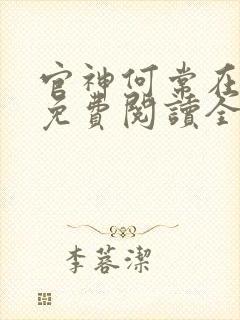 官神何常在
免費閱讀全
李蓉潔